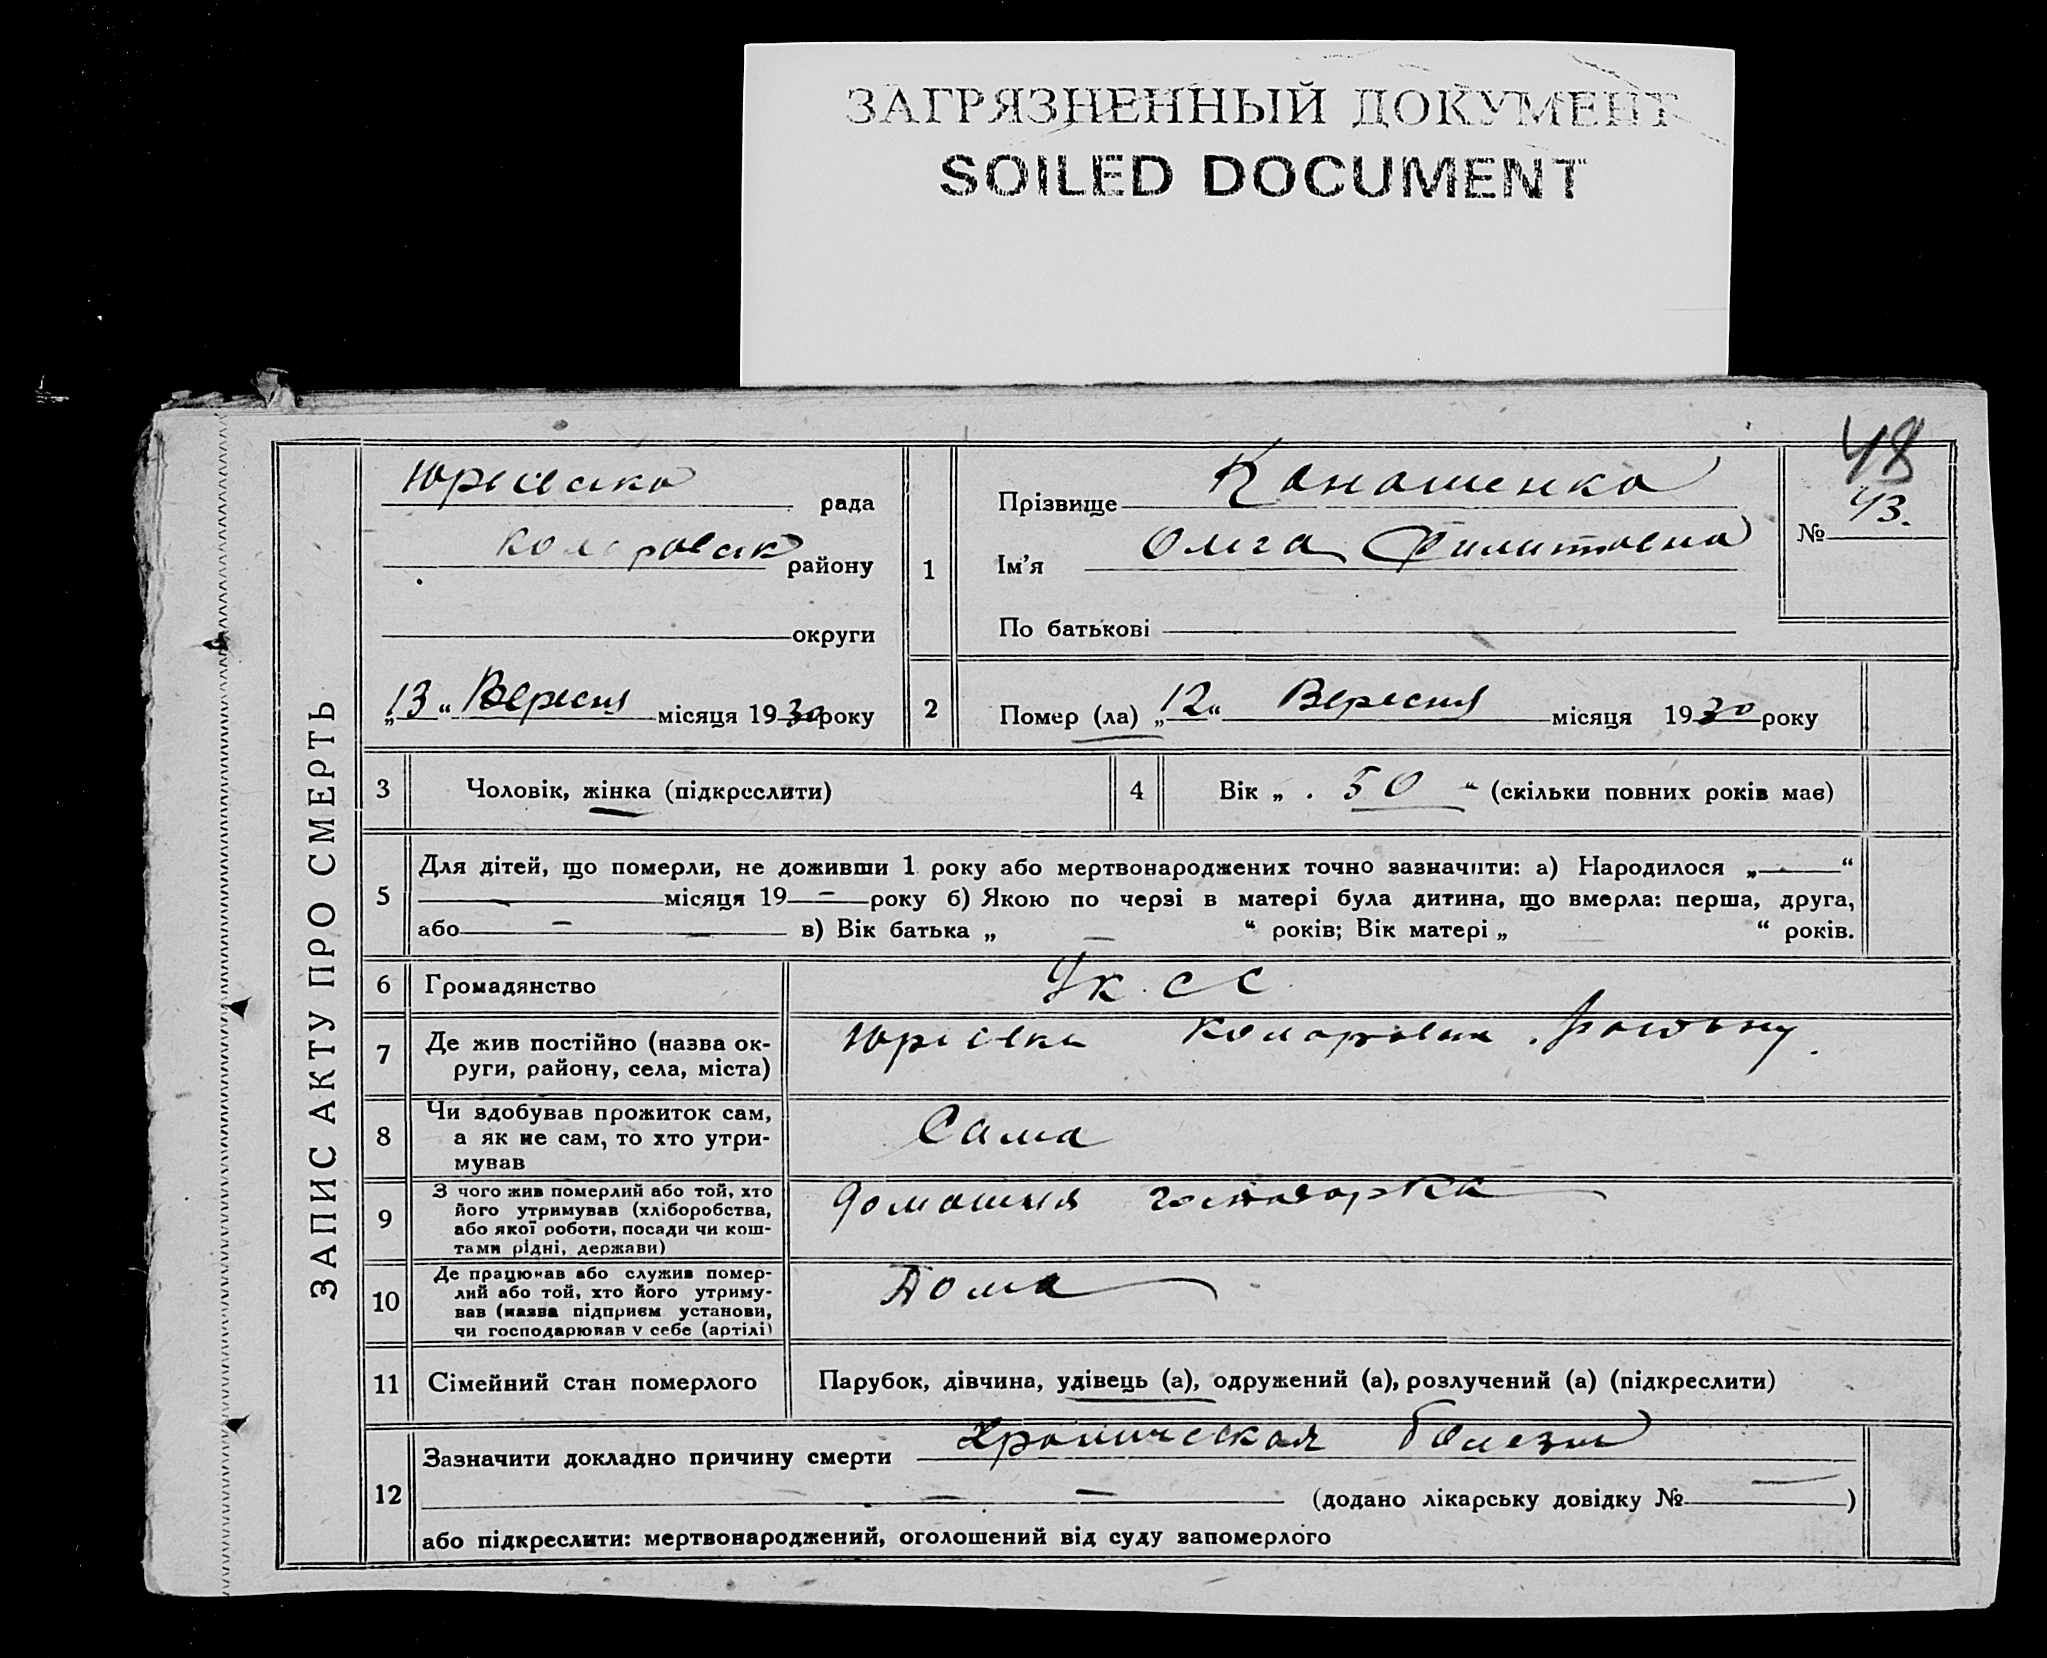 ЗАГРЯЗНЕННЫЙ ДОКУМЕНТ
SOILED DOCUMENT
ЗАПИС АКТУ ПРО СМЕРТЬ
48
Юрєєвска рада
району
округи
„13“ Вересня місяця 1930 року
1
Прізвище Канашенко
Ім'я Олга
По батькові
№ 43.
2 Помер (ла) „12“ Вересня місяця 1930 року
3 Чоловік, жінка (підкреслити)
4 Вік „ 50 “ (скільки повних років має)
5 Для дітей, що померли, не доживши 1 року або мертвонароджених точно зазначити: а) Народилося „—“
місяця 19 – року б) Якою по черзі в матері була дитина, що вмерла: перша, друга,
або – в) Вік батька „ – “ років; Вік матері „ “ років.
6 Громадянство Ук. С С
7 Де жив постійно (назва ок-
руги, району, села, міста)
8 Чи здобував прожиток сам,
а як не сам, то хто утри-
мував
Сама
9 З чого жив померлий або той, хто
його утримував (хліборобства,
або якої роботи, посади чи кош-
тами рідні, держави)
домашня господарка
10 Де працював або служив помер-
лий або той, хто його утриму-
вав (назва підприєм установи,
чи господарював у себе (артілі)
Дома
11 Сімейний стан померлого Парубок, дівчина, удівець (а), одружений (а), розлучений (а) (підкреслити)
12 Зазначити докладно причину смерти Хроническая болезн
(додано лікарську довідку № — )
або підкреслити: мертвонароджений, оголошений від суду запомерлого